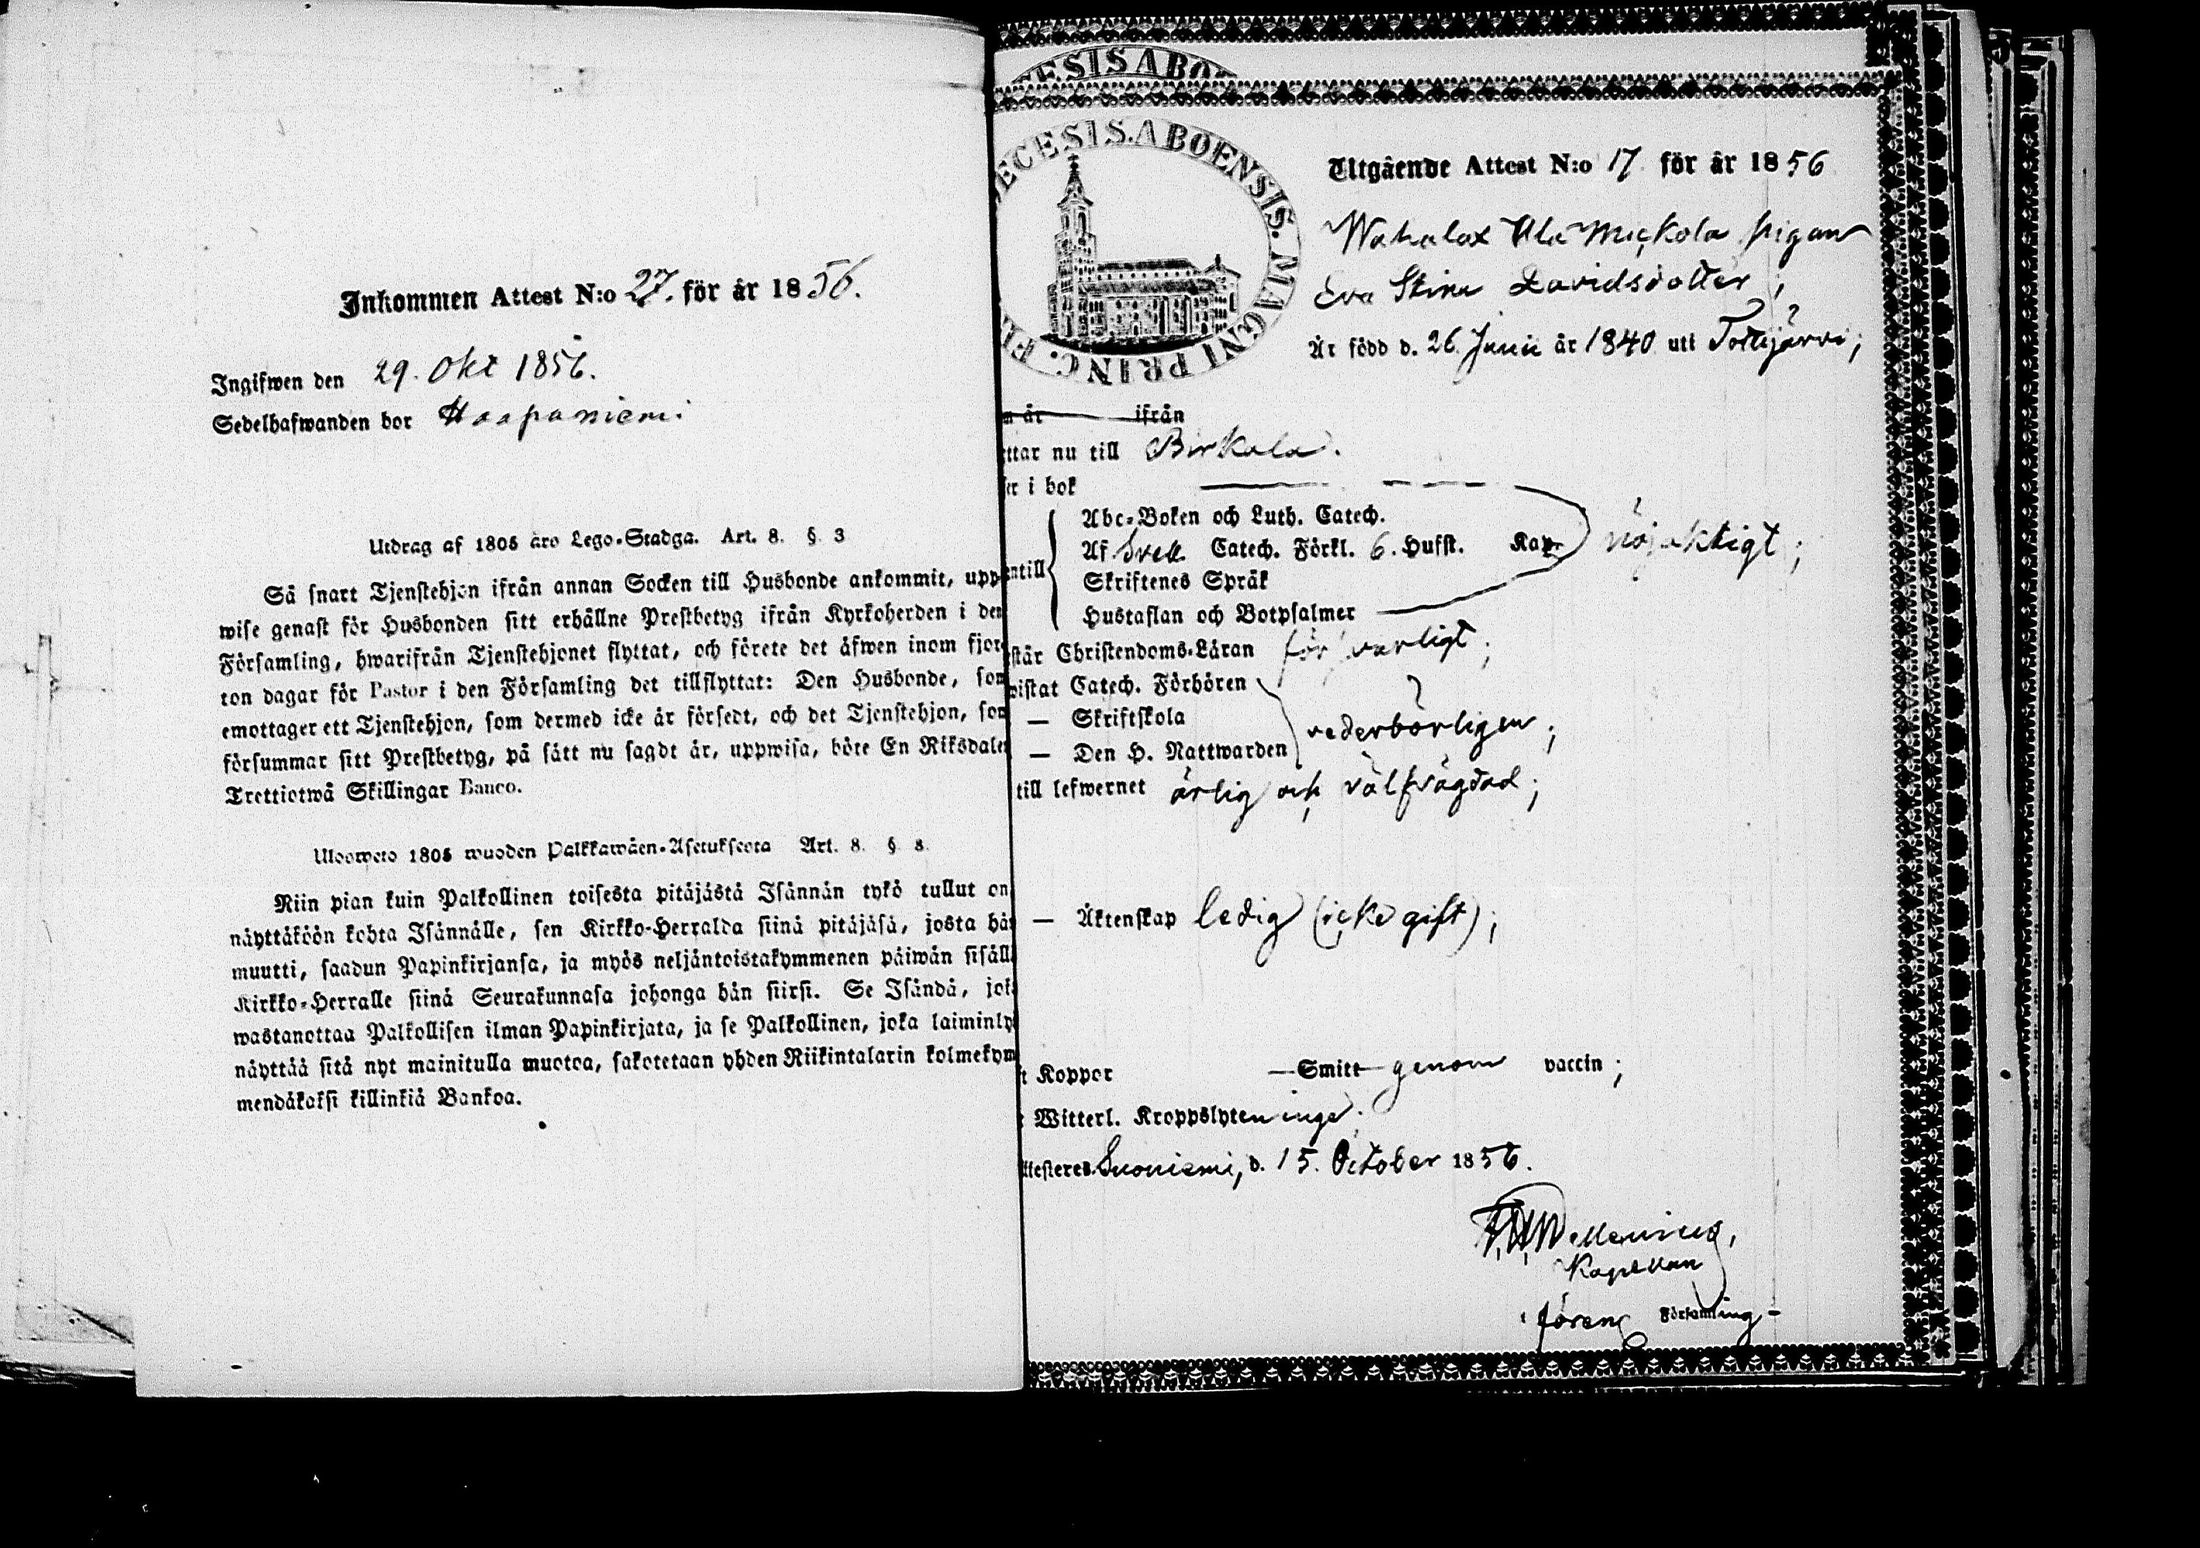 Inkommen Attest N:o 27. för år 1856.
Ingifwen den 29. Okt 1856.
Sedelhafwanden bor Haapaniemi.
Utdrag af 1805 års Lego-Stadga. Art. 8. § 3
Så snart Tjenstehjon ifrån annan Socken till Husbonde ankommit, upp-
wise genast för Husbonden sitt erhållne Prestbetyg ifrån Kyrkoherden i den
Församling, hwarifrån Tjenstehjonet flyttat, och förete det äfwen inom fjor-
ton dagar för Pastor i den Församling det tillflyttat: Den Husbonde, som
emottager ett Tjenstehjon, som dermed icke är försedt, och det Tjenstehjon, som
försummar sitt Prestbetyg, på sätt nu sagdt är, uppwisa, böte En Riksdaler
Trettiotwå Skillingar Banco.
Ulosweto 1805 wuoden Palkkawäen-Asetuksesta Art. 8. § 3.
Niin pian kuin Palkollinen toisesta pitäjästä Isännän tykö tullut on
näyttäköön kohta Isännälle, sen Kirkko-Herralda siinä pitäjäsä, josta hän
muutti, saadun Papinkirjansa, ja myös neljäntoistakymmenen päiwän sisäll
Kirkko-Herralle siinä Seurakunnasa johonga hän siirsi. Se Isändä, joka
wastanottaa Palkollisen ilman Papinkirjata, ja se Palkollinen, joka laiminly
näyttää sitä nyt mainitulla muotoa, sakotetaan yhden Riikintalarin kolmekym
mendäkaksi killinkiä Bankoa.
ECESIS ABO
ECESIS. ABOENSIS. MAGNI PRINC. FI
Utgående Attest N:o 17 för år 1856
Wahalax Ala Muckola pigan
Eva Stina Davidsdotter;
Är född d. 26 Junii år 1840 uti Tottijärvi;
år ifrån
ttar nu till Birkala.
er i bok
Abc-Boken och Luth. Catech.
Af Sveb. Catech. Förkl. 6. Hufst. Kap. nöjaktigt;
ntill Skriftenes Språk
Hustaflan och Botpsalmer
står Christendoms-Läran försvarligt;
wistat Catech. Förhören
— Skriftskola vederbörligen;
— Den H. Nattwarden
till lefwernet ärlig och välfrägdad;
— Äktenskap ledig (icke gift);
t Koppor Smitt genom vaccin;
Witterl. Kroppslyten inga.
ttesteres Suoniemi, d. 15. October 1856.
Kapellan
Församling